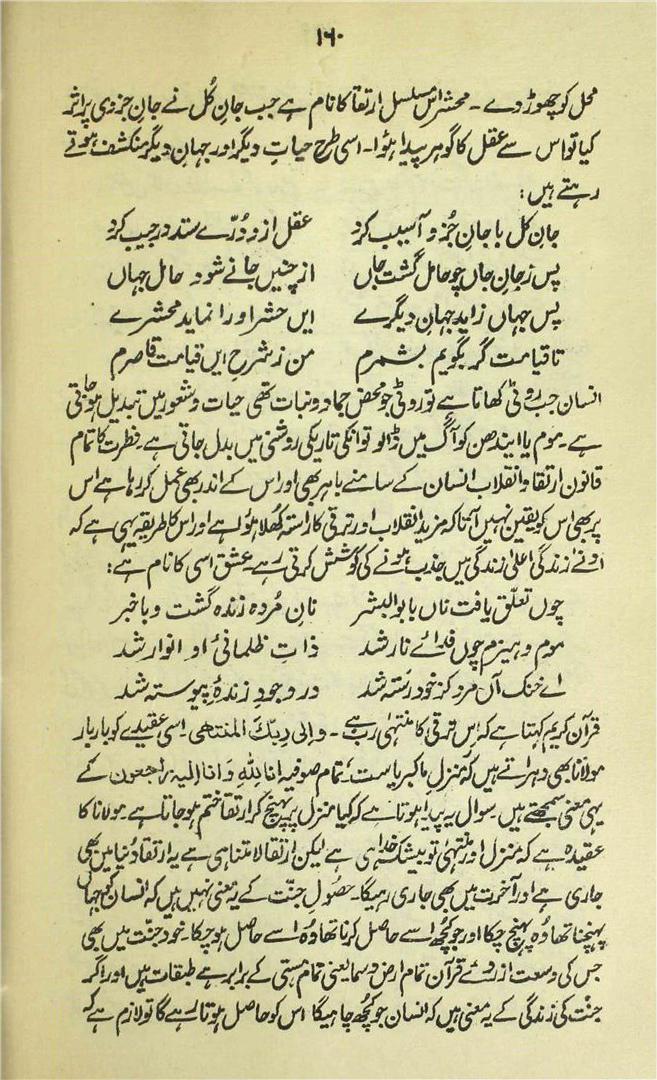 ۱۶۰
محل کو چھوڑ دے ۔ محشر اس مسلسل ارتقا کا نام ہے جب جانِ کُل نے جانِ جزوی پر اثر
کیا تو اس سے عقل کا گوہر پیدا ہؤا ۔ اسی طرح حیاتِ دیگر اور جہانِ دیگر منکشف ہوتے
رہتے ہیں :
جانِ کل با جانِ جُزو آسیب کرد عقل از و دُرّے ستد در جیب کرد
پس ز جانِ جاں چو حامل گشت جاں از چنیں جانے شود حامل جہاں
پس جہاں زاید جہانِ دیگرے ایں حشر او را نماید محشرے
تا قیامت گر بگویم بشمرم من ز شرحِ ایں قیامت قاصرم
انسان جب روٹی کھاتا ہے تو روٹی جو محض جماد و نبات تھی حیات و شعور میں تبدیل ہو جاتی
ہے ۔ موم یا ایندھن کو آگ میں ڈالو تو انکی تاریکی روشنی میں بدل جاتی ہے ۔ فطرت کا تمام
قانونِ ارتقا و انقلاب انسان کے سامنے باہر بھی اور اس کے اندر بھی عمل کر رہا ہے اس
پر بھی اس کو یقین نہیں آتا کہ مزید انقلاب اور ترقی کا راستہ کھلا ہؤا ہے اور اس کا طریقہ یہی ہے کہ
ادنےٰ زندگی اعلیٰ زندگی میں جذب ہونے کی کوشش کرتی رہے ۔ عشق اسی کا نام ہے :
چوں تعلّق یافت ناں با بو البشر نانِ مُردہ زندہ گشت و با خبر
موم و ہیزم چوں فدائے نار شد ذاتِ ظلمانیٔ او انوار شد
اے خنک آں مرد کز خود رَستہ شد در وجودِ زندۂ پیوستہ شد
قرآن کریم کہتا ہے کہ اس ترقی کا منتہیٰ رب ہے ۔ و الی ربک المنتھی ۔ اسی عقیدے کو بار بار
مولانا بھی دہراتے ہیں کہ منزلِ ما کبریاست ، تمام صوفیہ انا للہ و انا الیہ راجعون کے
یہی معنی سمجھتے ہیں ۔ سوال یہ پیدا ہوتا ہے کہ کیا منزل پر پہنچ کر ارتقا ختم ہو جاتا ہے ۔ مولانا کا
عقیدہ ہے کہ منزل اور منتہیٰ تو بیشک خدا ہی ہے لیکن ارتقا لا متناہی ہے یہ ارتقا دُنیا میں بھی
جاری ہے اور آخرت میں بھی جاری رہیگا ۔ حصُولِ جنّت کے یہ معنی نہیں ہیں کہ انسان کو جہاں
پہنچنا تھا وُہ پہنچ چکا اور جو کچھ اسے حاصل کرنا تھا وُہ اسے حاصل ہو چکا ۔ خود جنّت میں بھی
جس کی وسعت از روئے قرآن تمام ارض و سما یعنی تمام ہستی کے برابر ہے طبقات ہیں اور اگر
جنّت کی زندگی کے یہ معنی ہیں کہ انسان جو کچھ چاہیگا اس کو حاصل ہوتا رہے گا تو لازم ہے کہ